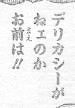 デリカシーが
ねェのか
お前は!!